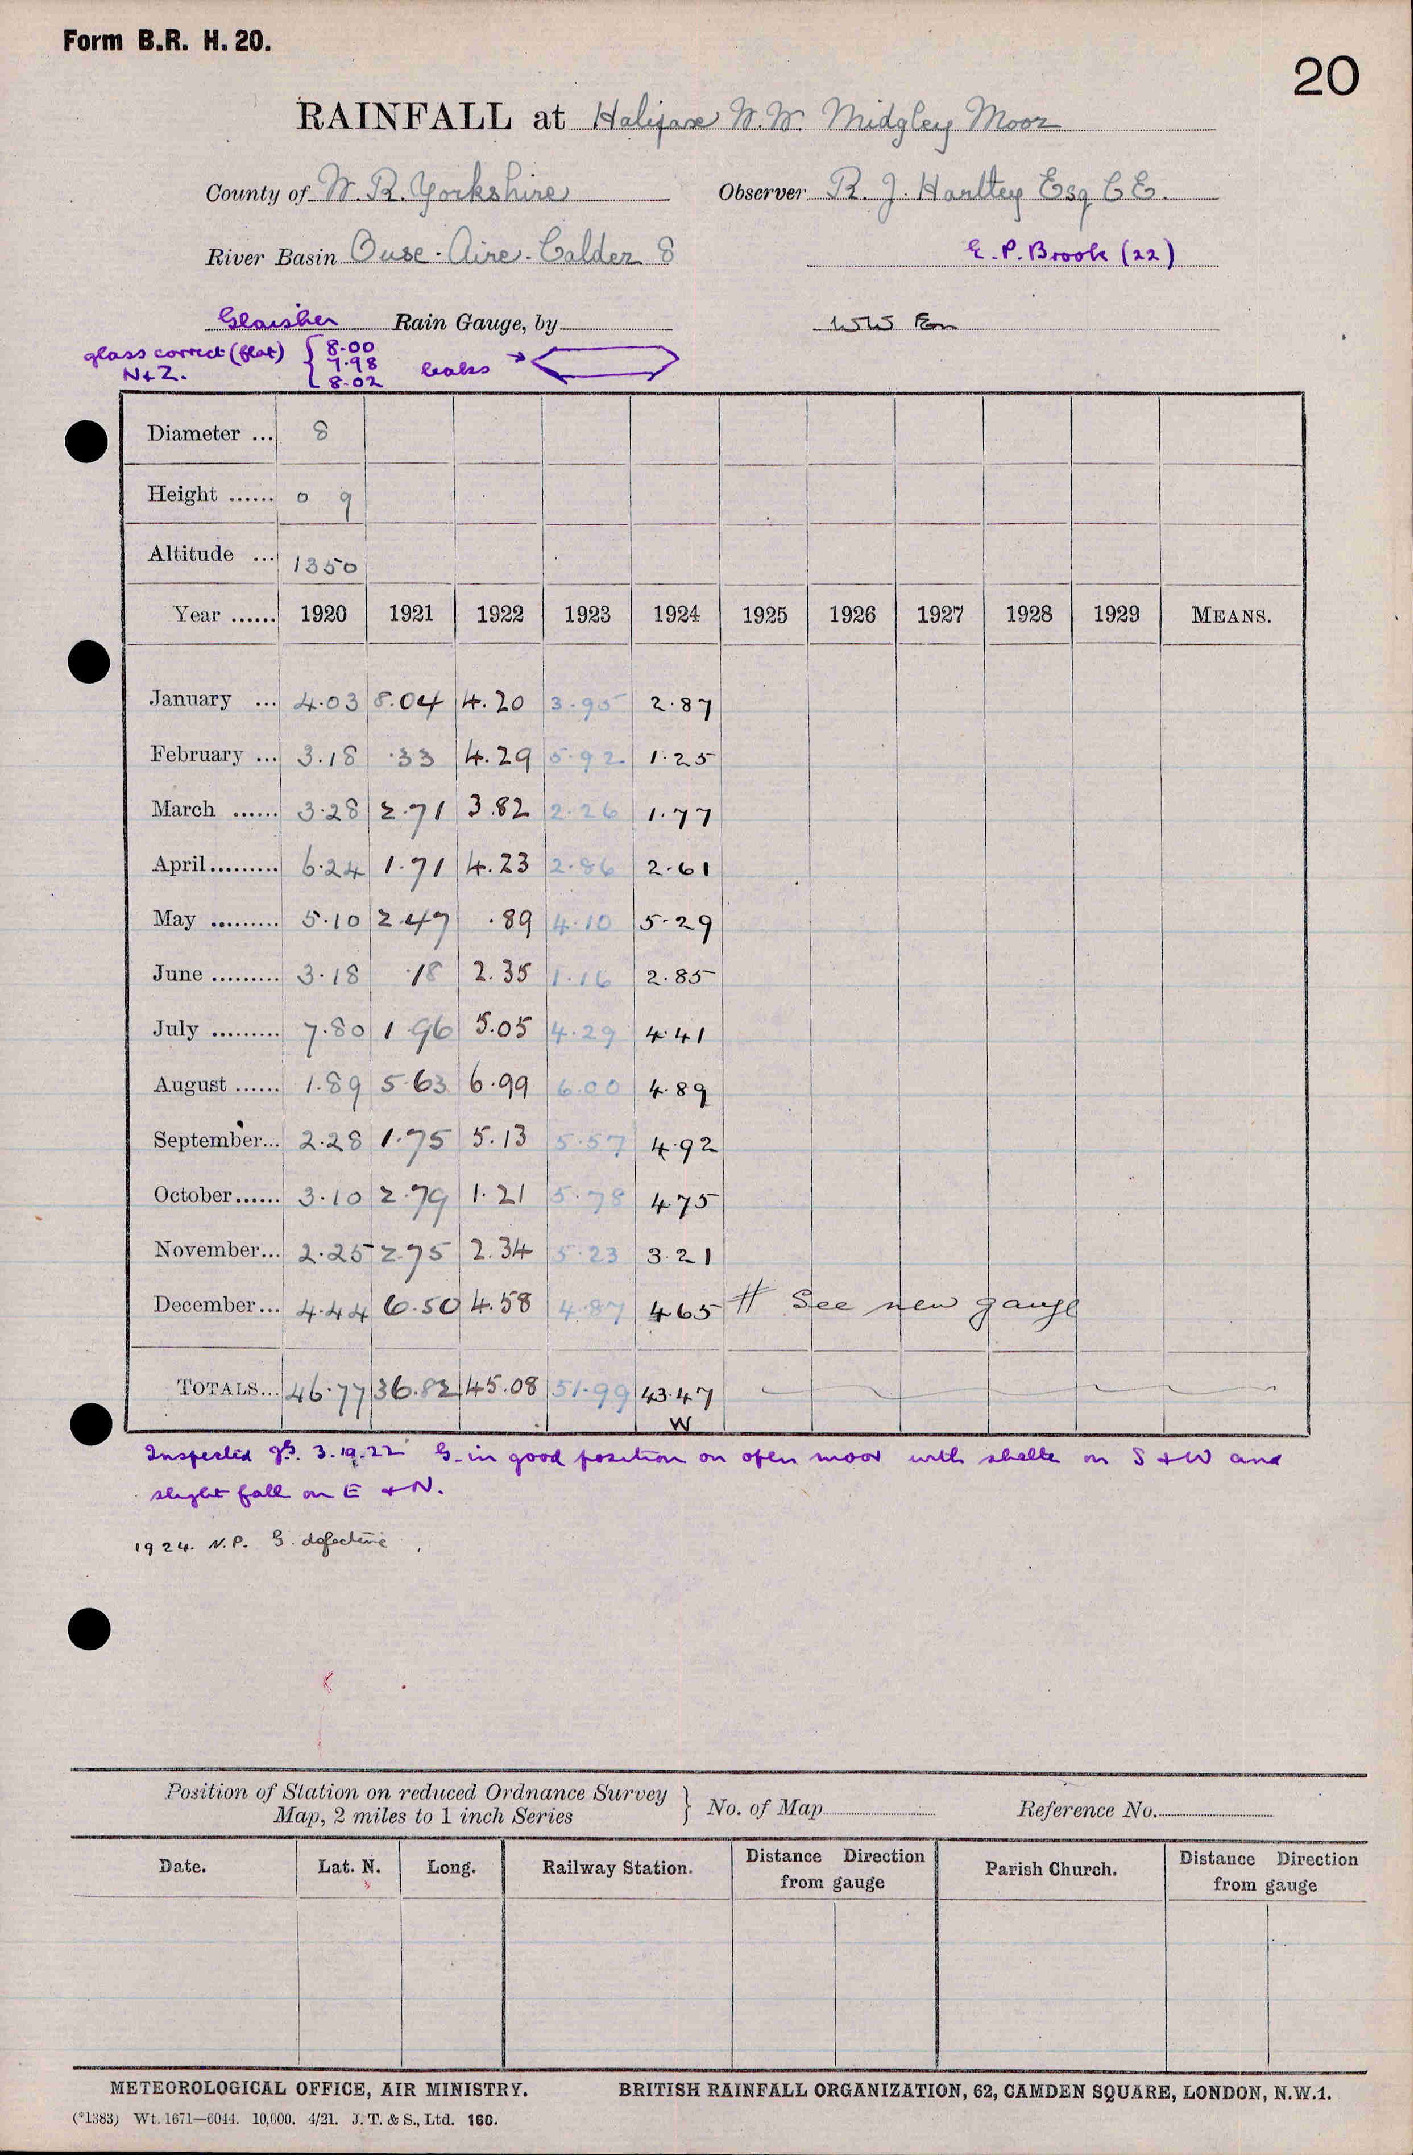 Form B.R. H. 20.
20
RAINFALL at Halifax W.W. Midgley Moor
County of W. R. Yorkshire Observer R. J. Hartley Esq C E.
River Basin Ouse - Aire - Calder 8 E. P. Brook (22)
Glaisher Rain Gauge, by WW Em
glass correct (flat) { 8.00
N+Z. 7.98
8.02 leaks →
Diameter ... 8
Height ...... 0 9
Altitude ... 1350
Year ...... 1920 1921 1922 1923 1924 1925 1926 1927 1928 1929 MEANS.
January ... 4.03 8.04 4.20 3.95 2.87
February ... 3.18 .33 4.29 5.92 1.25
March ...... 3.28 2.71 3.82 2.26 1.77
April......... 6.24 1.71 4.23 2.86 2.61
May ......... 5.10 2.47 .89 4.10 5.29
June ......... 3.18 .18 2.35 1.16 2.85
July ......... 7.80 1.96 5.05 4.29 4.41
August ...... 1.89 5.63 6.99 6.00 4.89
September... 2.28 1.75 5.13 5.57 4.92
October...... 3.10 2.79 1.21 5.78 4.75
November... 2.25 2.75 2.34 5.23 3.21
December... 4.44 6.50 4.58 4.87 4.65 # See new gauge
TOTALS... 46.77 36.82 45.08 51.99 43.47
W
Inspected 3.19.22 G. in good position on open moor with shelter on S + W and
slight fall on E + N.
1924. N.P. G. defective
Position of Station on reduced Ordnance Survey
Map, 2 miles to 1 inch Series } No. of Map Reference No.
Date. Lat. N. Long. Railway Station. Distance Direction from gauge Parish Church. Distance Direction from gauge
METEOROLOGICAL OFFICE, AIR MINISTRY. BRITISH RAINFALL ORGANIZATION, 62, CAMDEN SQUARE, LONDON, N.W.1.
(*1383) Wt. 1671—6044. 10,000. 4/21. J. T. & S., Ltd. 160.